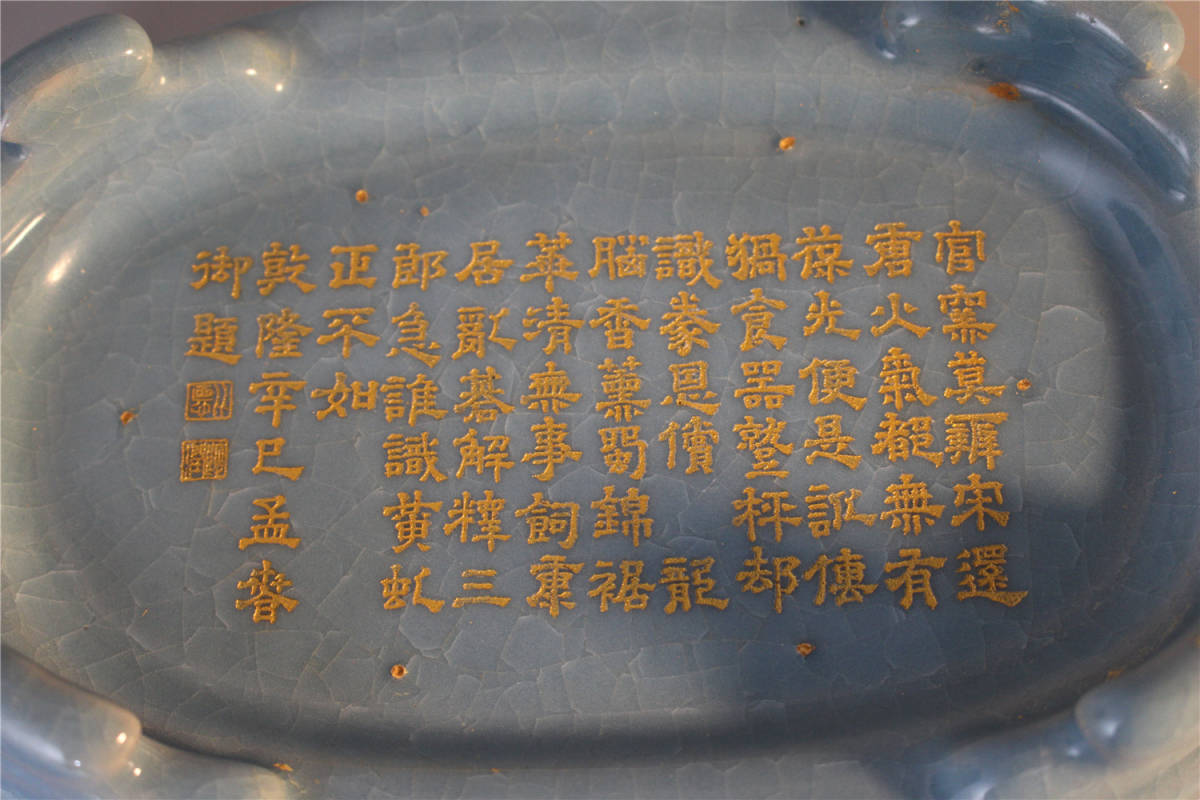 官窯莫辨宋還
唐火氣都無有
葆光便是訛傳
猧食器蹵枰却
識豢恩償 龍
腦香薰蜀錦裾
華清無事飼康
居亂碁解釋三
郎急誰識黃虬
正不如
乾隆辛巳孟春
御題